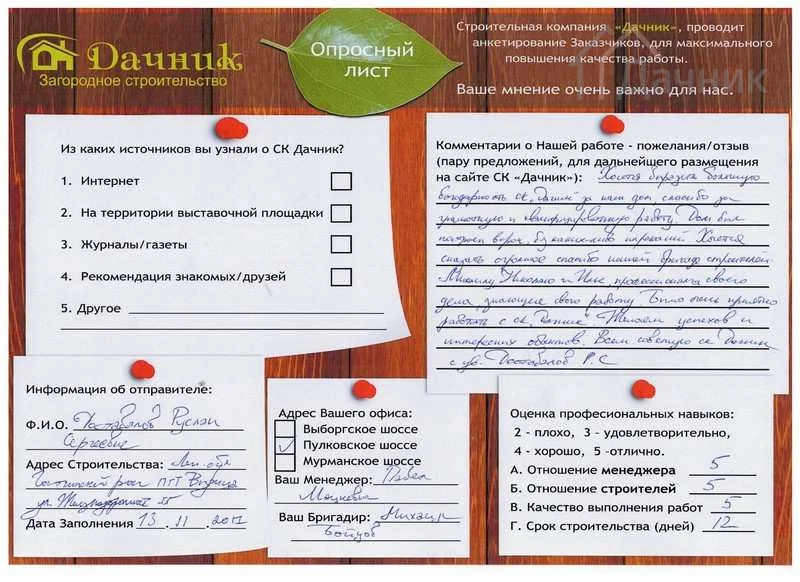 Дачник
Загородное строительство
Опросный
лист
Строительная компания «Дачник», проводит
анкетирование Заказчиков, для максимального
повышения качества работы.
Ваше мнение очень важно для нас.
Дачник
Из каких источников вы узнали о СК Дачник?
1. Интернет
2. На территории выставочной площадки
3. Журналы/газеты
4. Рекомендация знакомых/друзей
5. Другое
Комментарии о Нашей работе - пожелания/отзыв
(пару предложений, для дальнейшего размещения
на сайте СК «Дачник»): Хочется выразить большую
благодарность СК "Дачник" за наш дом, спасибо за
грамотную и квалифицированную работу. Дом был
построен в срок, без каких либо нареканий. Хочется
сказать огромное спасибо нашей бригаде строителей
Михаилу, Николаю и Илье, профессионалы своего
дела, знающие свою работу. Было очень приятно
работать с СК "Дачник" Желаем успехов и
интересных объектов. Всем советую ск. Дачник
с ув. Р.С
Информация об отправителе:
Ф.И.О. Руслан
Сергеевич
Адрес Строительства: Лен. обл
Гатчинский район ПГТ Вырица
ул.
Дата Заполнения 13 . 11 . 2011
Адрес Вашего офиса:
Выборгское шоссе
Пулковское шоссе
Мурманское шоссе
Ваш Менеджер: Павел
Ваш Бригадир: Михаил
Бойцов
Оценка профессиональных навыков:
2 - плохо, 3 - удовлетворительно,
4 - хорошо, 5 -отлично.
А. Отношение менеджера 5
Б. Отношение строителей 5
В. Качество выполнения работ 5
Г. Срок строительства (дней) 12